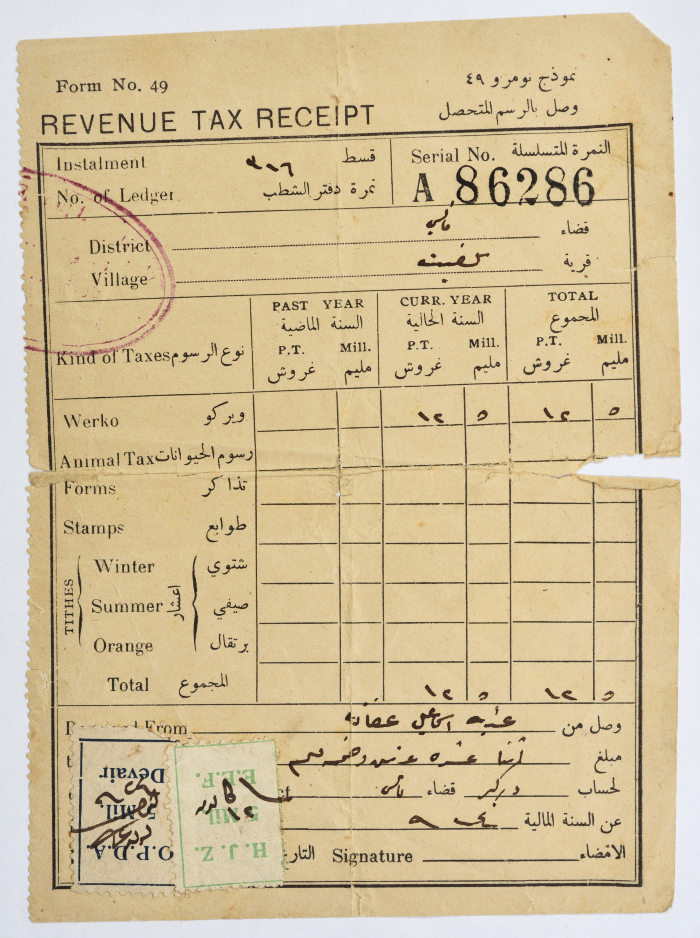 Form No. 49 نموذج نومرو ٤٩
REVENUE TAX RECEIPT وصل بالرسم المتحصل
Instalment ٣١٦ قسط
No. of Ledger نمرة دفتر الشطب
Serial No. النمرة المتسلسلة
A 86286
District قضاء
Village قرية
PAST YEAR CURR. YEAR TOTAL
السنة الماضية السنة الحالية المجموع
Kind of Taxes نوع الرسوم
P.T. Mill. P.T. Mill. P.T. Mill.
غروش مليم غروش مليم غروش مليم
Werko ويركو ١٢ ٥ ١٢ ٥
Animal Tax رسوم الحيوانات
Forms تذاكر
Stamps طوابع
TITHES اعشار
Winter شتوي
Summer صيفي
Orange برتقال
Total المجموع ١٢ ٥ ١٢ ٥
Received From وصل من
مبلغ
لحساب ويركو قضاء
عن السنة المالية
Signature الامضاء
O.P.D.A.
5 Mil
Devair
H.J.Z.
5 Mil
E.E.F.